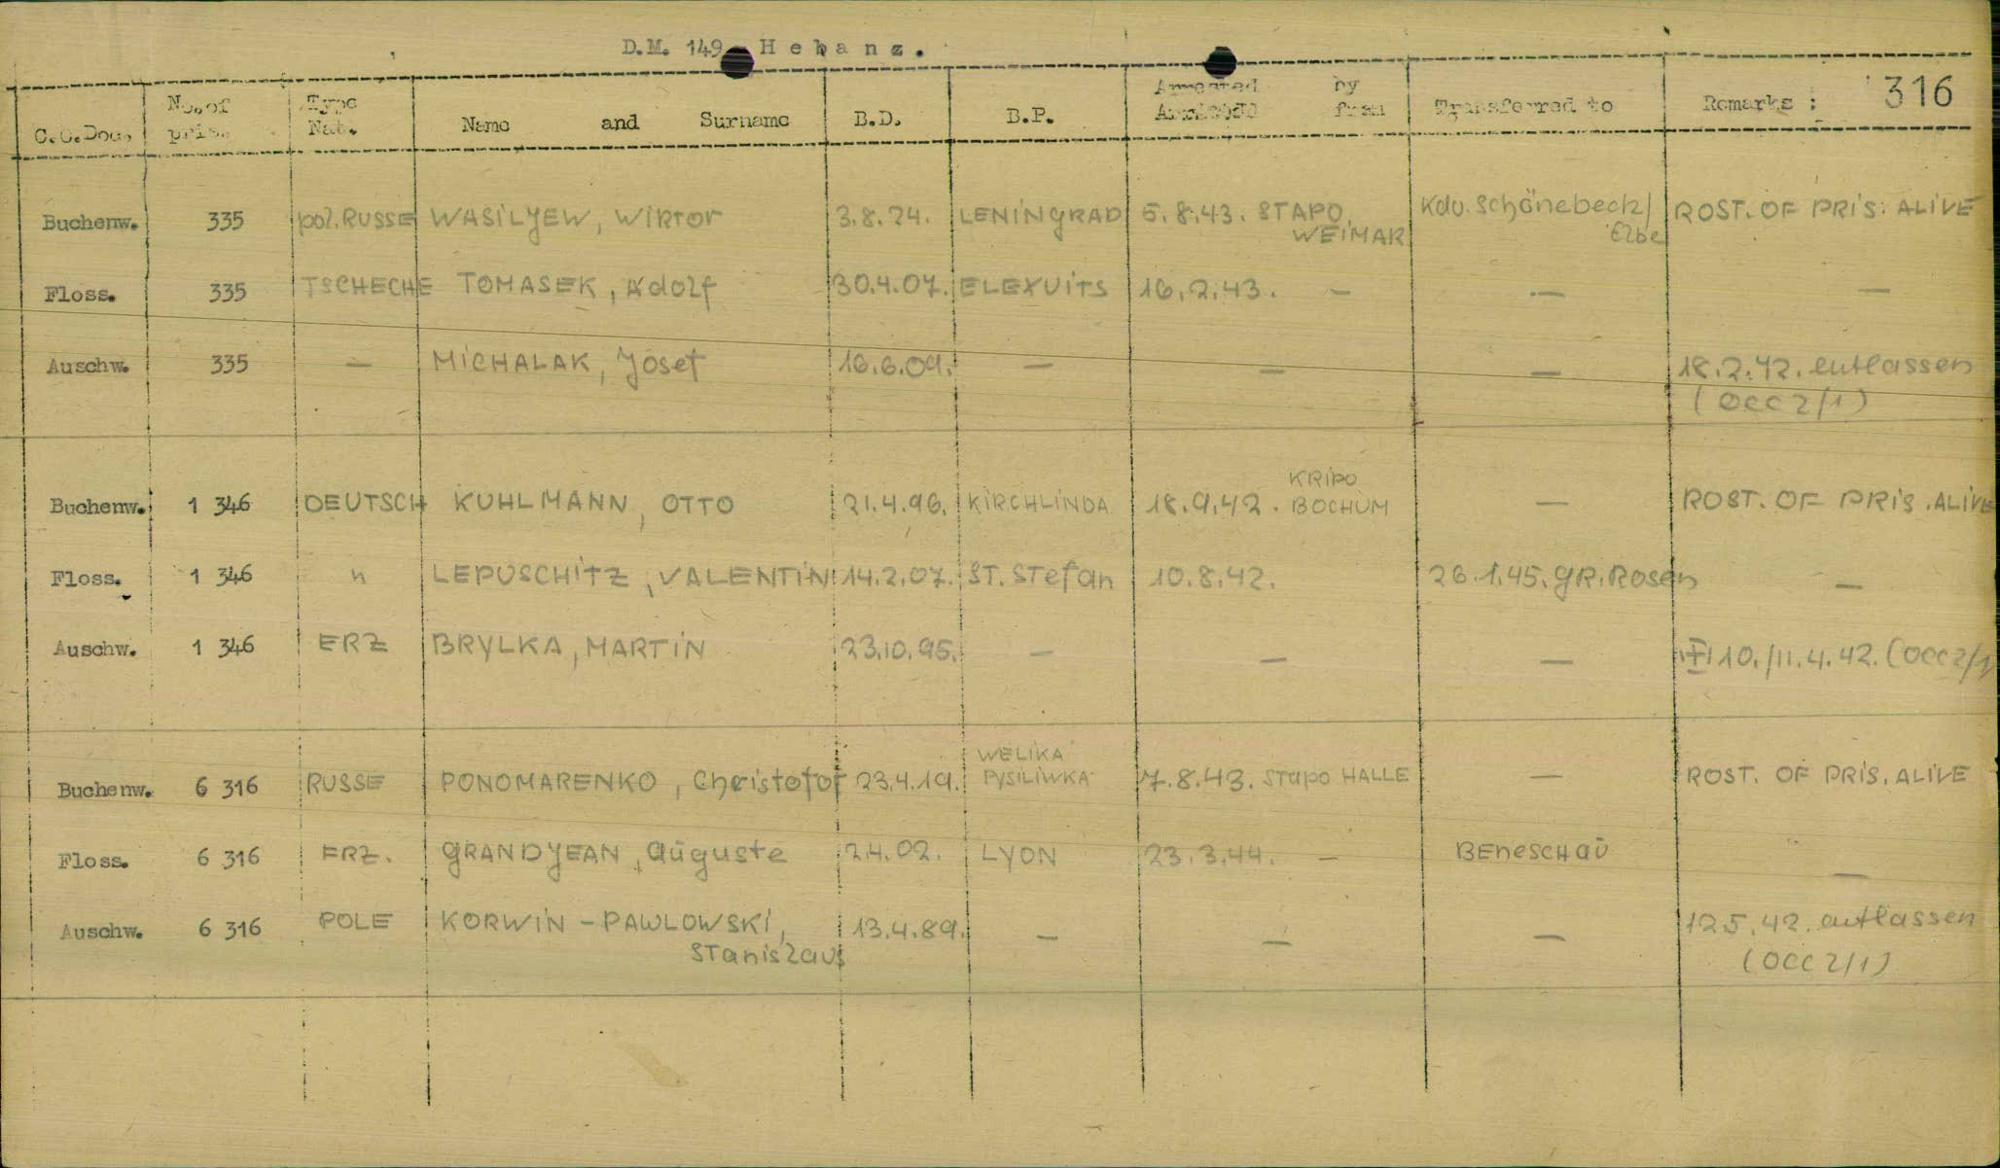 D.M. 149 Hebanz.
316
C.C.Doc. No.of pris. Type Nat. Name and Surname B.D. B.P. Arrested by from Transferred to Remarks :
Buchenw. 335 pol.RUSSE WASILJEW, WIKTOR 3.8.24. LENINGRAD 5.8.43. STAPO, WEIMAR Kdo. Schönebeck/Elbe ROST. OF PRIS. ALIVE
Floss. 335 TSCHECHE TOMASEK, Adolf 30.4.07. ELEXUITS 16.2.43. — — —
Auschw. 335 — MICHALAK, Josef 16.6.09. — — — 18.2.42. entlassen
(OCC 2/1)
Buchenw. 1 346 DEUTSCH KUHLMANN, OTTO 21.4.96. KIRCHLINDA 18.9.42. KRIPO BOCHUM — ROST. OF PRIS. ALIVE
Floss. 1 346 " LEPUSCHITZ, VALENTIN 14.2.07. ST. STefan 10.8.42. 26.1.45. GR.Rosen —
Auschw. 1 346 ERZ BRYLKA, MARTIN 23.10.95. — — — 10./11.4.42. (OCC 2/1)
Buchenw. 6 316 RUSSE PONOMARENKO, Christofor 23.4.19. WELIKA PYSILIWKA 7.8.43. Stapo HALLE — ROST. OF PRIS. ALIVE
Floss. 6 316 ERZ. GRANDJEAN, Auguste 2.4.02. LYON 23.3.44. — BENESCHAU —
Auschw. 6 316 POLE KORWIN-PAWLOWSKI, Stanislaus 13.4.89. — — — 12.5.42. entlassen
(OCC 2/1)